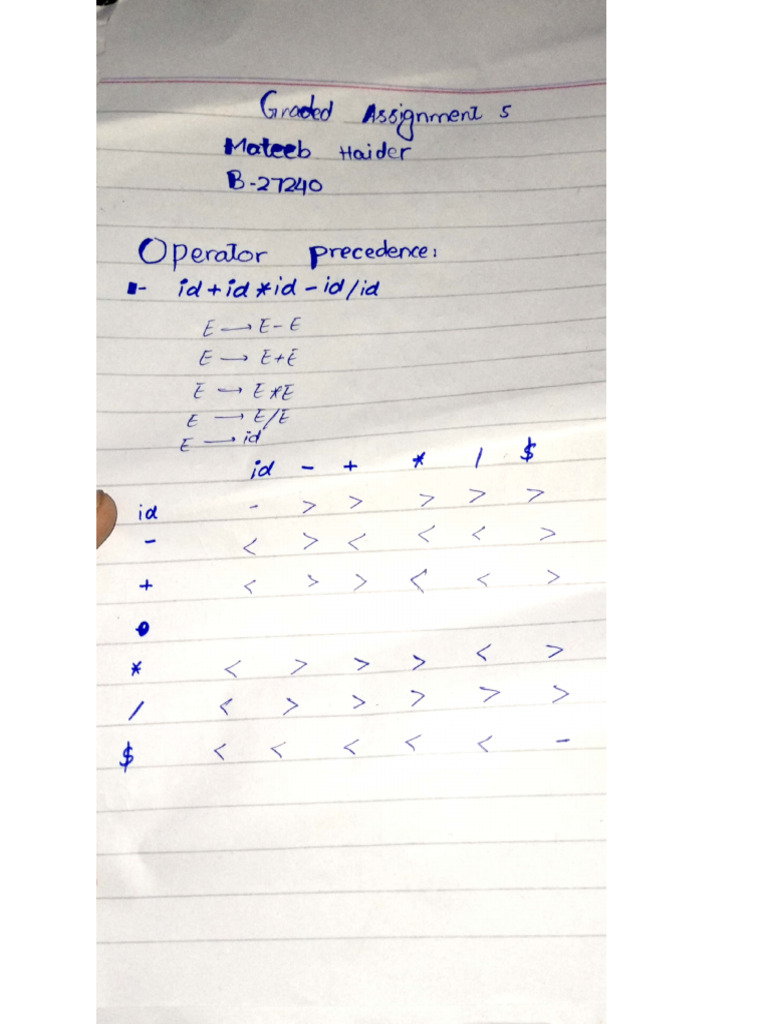 Graded Assignment 5
Mateeb Haider
B-27240
Operator precedence:
- id+id*id-id/id
E → E-E
E → E+E
E → E*E
E → E/E
E → id
id - + * / $
id - > > > > >
- < > < < < >
+ < > > < < >
* < > > > < >
/ < > > > > >
$ < < < < < -